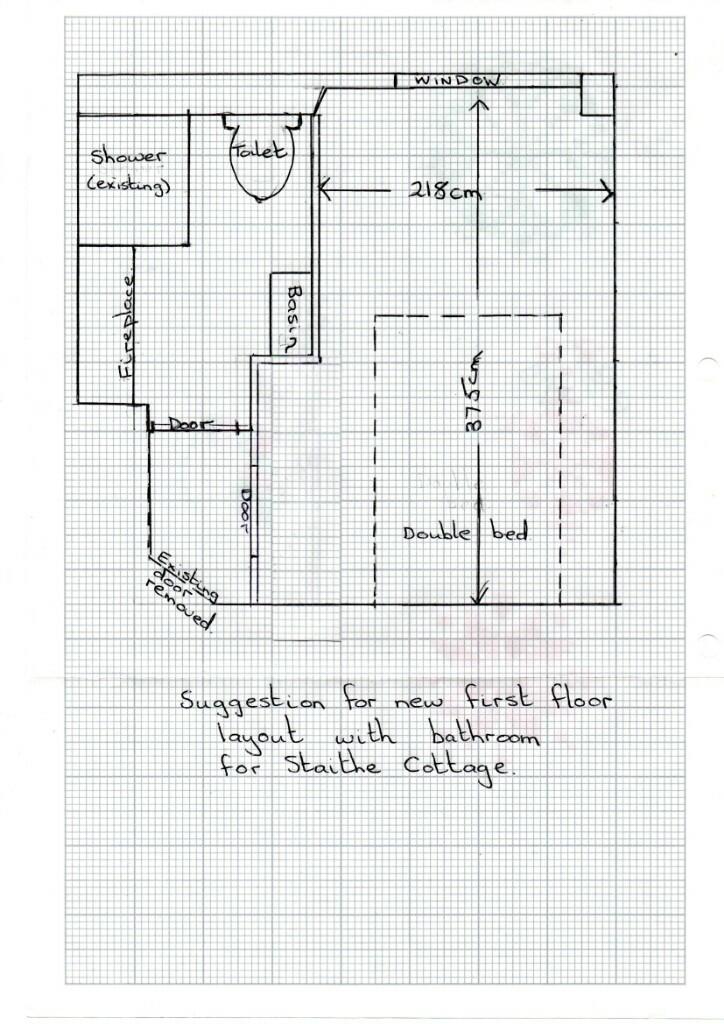 WINDOW
Shower
(existing)
Toilet
218cm
Fireplace.
Basin
375cm
Door
Door
Double bed
Existing
door
removed.
Suggestion for new first floor
layout with bathroom
for Staithe Cottage.